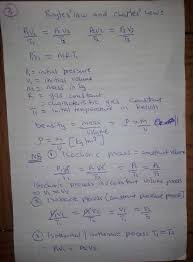 Boyles' law and charles' laws
P₁V₁/T₁ = P₂V₂/T₂
PV₁ = MRT₁
P₁ = initial pressure
V₁ = initial volume
M₁ = mass in kg
R = gas constant
= characteristic gas constant
T₁ = initial temperature in kelvin
Density = mass/volume P = m/v
P = m/v [kg/m³]
NB ① Isochoric process = constant volume
P₁V₁/T₁ = P₂V₂/T₂ = P₁/T₁ = P₂/T₂
Isochoric process is constant volume process
② Isobaric process (constant pressure process)
P₁V₁/T₁ = P₂V₂/T₂ = V₁/T₁ = V₂/T₂
③ Isothermal process T₁ = T₂
P₁V₁ = P₂V₂